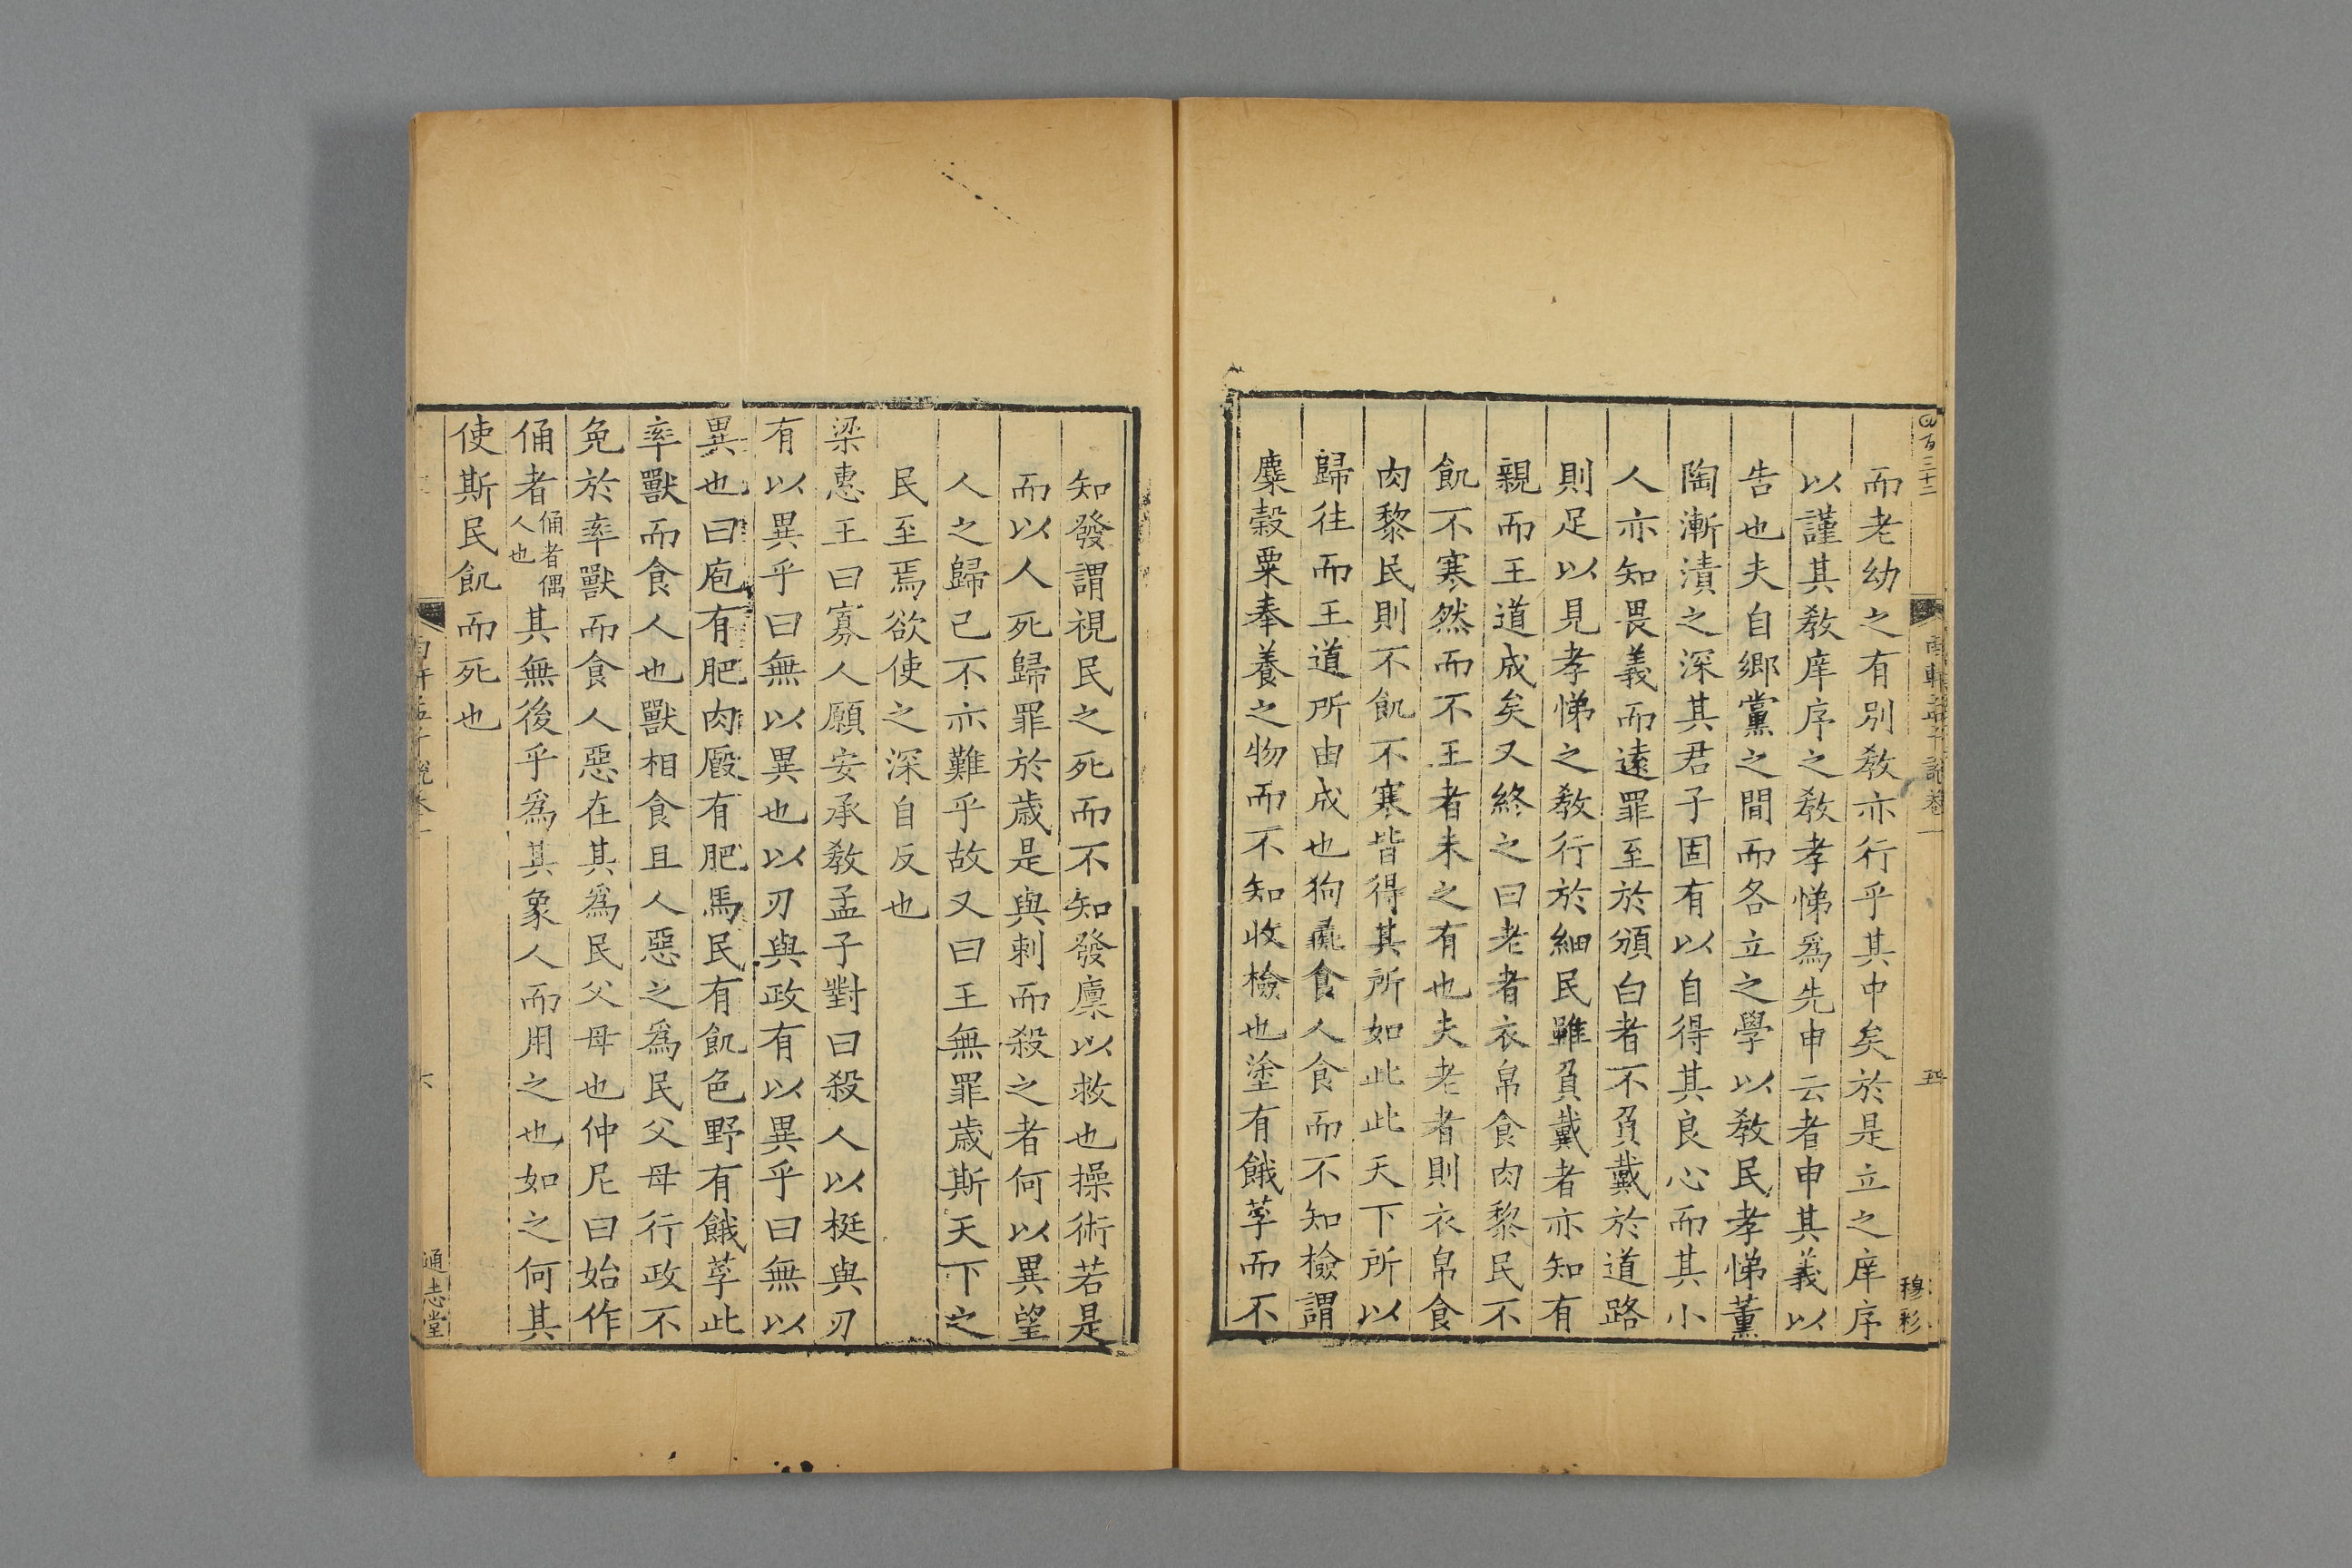 四百三十二
南軒孟子說卷一
五
穆彩
而老幼之有別教亦行乎其中矣於是立之庠序
以謹其教庠序之教孝悌爲先申云者申其義以
告也夫自鄉黨之間而各立之學以教民孝悌薰
陶漸漬之深其君子固有以自得其良心而其小
人亦知畏義而遠罪至於頒白者不負戴於道路
則足以見孝悌之教行於細民雖負戴者亦知有
親而王道成矣又終之曰老者衣帛食肉黎民不
飢不寒然而不王者未之有也夫老者則衣帛食
肉黎民則不飢不寒皆得其所如此此天下所以
歸往而王道所由成也狗彘食人食而不知檢謂
糜穀粟奉養之物而不知收檢也塗有餓莩而不
知發謂視民之死而不知發廩以救也操術若是
而以人死歸罪於歲是與刺而殺之者何以異望
人之歸己不亦難乎故又曰王無罪歲斯天下之
民至焉欲使之深自反也
梁惠王曰寡人願安承教孟子對曰殺人以梃與刃
有以異乎曰無以異也以刃與政有以異乎曰無以
異也曰庖有肥肉廄有肥馬民有飢色野有餓莩此
率獸而食人也獸相食且人惡之爲民父母行政不
免於率獸而食人惡在其爲民父母也仲尼曰始作
俑者俑者偶人也其無後乎爲其象人而用之也如之何其
使斯民飢而死也
南軒孟子說卷一
六
通志堂